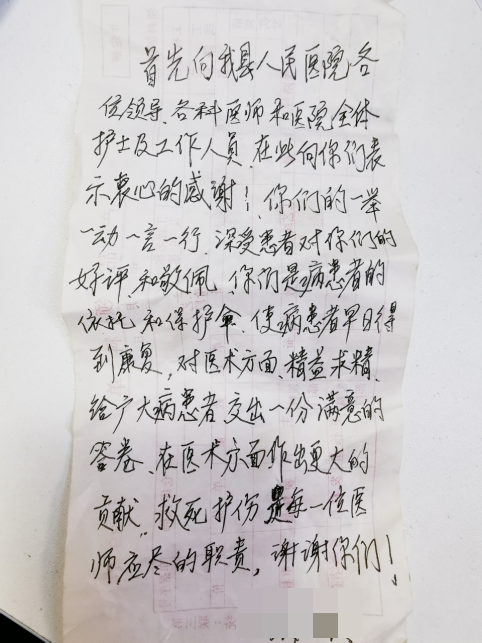 首先向我县人民医院各
位领导、各科医师和医院全体
护士及工作人员、在此向你们表
示衷心的感谢！你们的一举
一动一言一行、深受患者对你们的
好评、和敬佩、你们是病患者的
依托和保护伞、使病患者早日得
到康复、对医术方面、精益求精、
给广大病患者交出一份满意的
答卷、在医术方面作出更大的
贡献、救死护伤是每一位医
师应尽的职责，谢谢你们！